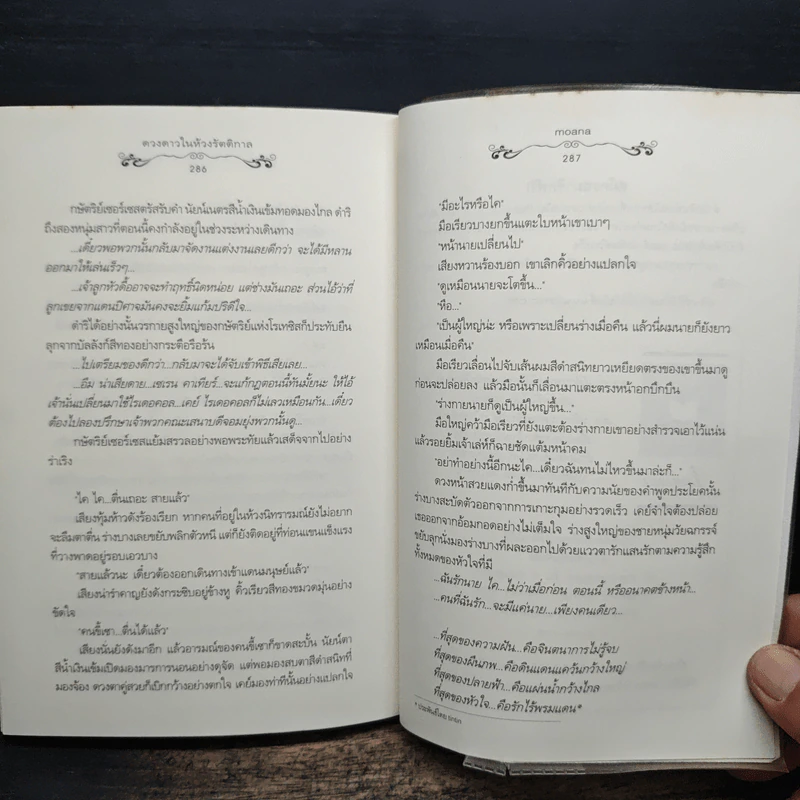 ดวงดาวในห้วงรัตติกาล
286
กษัตริย์เซอร์เซสตรัสรับคำ นัยน์เนตรสีน้ำเงินเข้มทอดมองไกล ดำริ
ถึงสองหนุ่มสาวที่ตอนนี้คงกำลังอยู่ในช่วงระหว่างเดินทาง
...เดี๋ยวพอพวกนั้นกลับมาจัดงานแต่งงานเลยดีกว่า จะได้มีหลาน
ออกมาให้เล่นเร็วๆ...
...เจ้าลูกหัวดื้ออาจจะทำฤทธิ์นิดหน่อย แต่ช่างมันเถอะ ส่วนไอ้ว่าที่
ลูกเขยจากแดนปีศาจมันคงจะยิ้มแก้มปริดีใจ...
ดำริได้อย่างนั้นวรกายสูงใหญ่ของกษัตริย์แห่งโรเทซัสก็ประทับยืน
ลุกจากบัลลังก์สีทองอย่างกระตือรือร้น
...ไปเตรียมของดีกว่า...กลับมาจะได้จับเข้าพิธีเสียเลย...
...อืม น่าเสียดาย...เซเรน คาเทียร์...จะแก้กฎตอนนี้ทันมั้ยนะ ให้ไอ้
เจ้านั่นเปลี่ยนมาใช้โรเดอคอล...เคย์ โรเดอคอลก็ไม่เลวเหมือนกัน...เดี๋ยว
ต้องไปลองปรึกษาเจ้าพวกคณะเสนาบดีจอมยุ่งพวกนั้นดู...
กษัตริย์เซอร์เซสแย้มสรวลอย่างพอพระทัยแล้วเสด็จจากไปอย่าง
ร่าเริง
"ไค ไค...ตื่นเถอะ สายแล้ว"
เสียงทุ้มห้าวดังร้องเรียก หากคนที่อยู่ในห้วงนิทรารมณ์ยังไม่อยาก
จะลืมตาตื่น ร่างบางเลยขยับพลิกตัวหนี แต่ก็ยังติดอยู่ที่ท่อนแขนแข็งแรง
ที่วางพาดอยู่รอบเอวบาง
"สายแล้วนะ เดี๋ยวต้องออกเดินทางเข้าแดนมนุษย์แล้ว"
เสียงน่ารำคาญยังดังกระซิบอยู่ข้างหู คิ้วเรียวสีทองขมวดมุ่นอย่าง
ขัดใจ
"คนขี้เซา...ตื่นได้แล้ว"
เสียงนั่นยังดังมาอีก แล้วอารมณ์ของคนขี้เซาก็ขาดสะบั้น นัยน์ตา
สีน้ำเงินเข้มเปิดมองมารการนอนอย่างดุจัด แต่พอมองสบตาสีดำสนิทที่
มองจ้อง ดวงตาคู่สวยก็เบิกกว้างอย่างตกใจ เคย์มองท่าทีนั้นอย่างแปลกใจ
moana
287
"มีอะไรหรือไค"
มือเรียวบางยกขึ้นแตะใบหน้าเขาเบาๆ
"หน้านายเปลี่ยนไป"
เสียงหวานร้องบอก เขาเลิกคิ้วอย่างแปลกใจ
"ดูเหมือนนายจะโตขึ้น..."
"หือ..."
"เป็นผู้ใหญ่น่ะ หรือเพราะเปลี่ยนร่างเมื่อคืน แล้วนี่ผมนายก็ยังยาว
เหมือนเมื่อคืน"
มือเรียวเลื่อนไปจับเส้นผมสีดำสนิทยาวเหยียดตรงของเขาขึ้นมาดู
ก่อนจะปล่อยลง แล้วมือนั้นก็เลื่อนมาแตะตรงหน้าอกบึกบึน
"ร่างกายนายก็ดูเป็นผู้ใหญ่ขึ้น..."
มือใหญ่คว้ามือเรียวที่ยังแตะต้องร่างกายเขาอย่างสำรวจเอาไว้แน่น
แล้วรอยยิ้มเจ้าเล่ห์ก็ฉายชัดแต้มหน้าคม
"อย่าทำอย่างนี้อีกนะไค...เดี๋ยวฉันทนไม่ไหวขึ้นมาล่ะก็..."
ดวงหน้าสวยแดงก่ำขึ้นมาทันทีกับความนัยของคำพูดประโยคนั้น
ร่างบางสะบัดตัวออกจากการเกาะกุมอย่างรวดเร็ว เคย์จำใจต้องปล่อย
เธอออกจากอ้อมกอดอย่างไม่เต็มใจ ร่างสูงใหญ่ของชายหนุ่มวัยฉกรรจ์
ขยับลุกนั่งมองร่างบางที่ผละออกไปด้วยแววตารักแสนรักตามความรู้สึก
ทั้งหมดของหัวใจที่มี
...ฉันรักนาย ไค...ไม่ว่าเมื่อก่อน ตอนนี้ หรืออนาคตข้างหน้า...
...คนที่ฉันรัก...จะมีแค่นาย...เพียงคนเดียว...
...ที่สุดของความฝัน...คือจินตนาการไม่รู้จบ
ที่สุดของผืนภพ...คือดินแดนแคว้นกว้างใหญ่
ที่สุดของปลายฟ้า...คือแผ่นน้ำกว้างไกล
ที่สุดของหัวใจ...คือรักไร้พรมแดน*
* ประพันธ์โดย